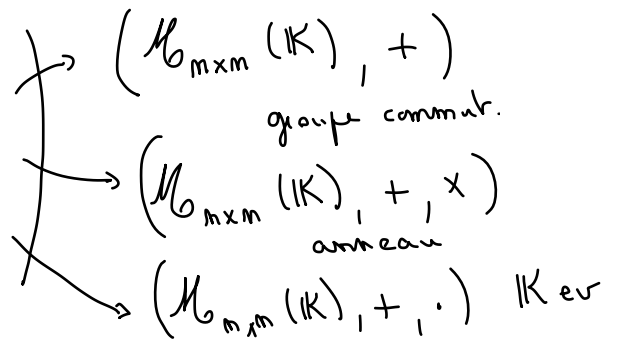 (M_{n×n}(K), +)
groupe commut.
(M_{n×n}(K), +, ×)
anneau
(M_{n×n}(K), +, ·) K ev